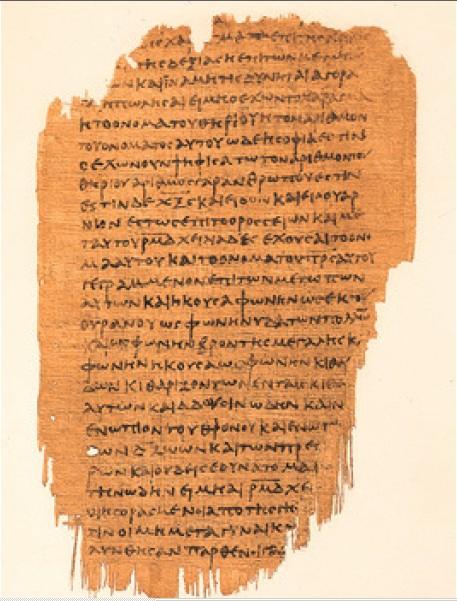 ΤΗϹΔΕΞΙΑϹΗΕΠΙΤΩΝΜΕΤ
ΩΝΚΑΙΙΝΑΜΗΤΙϹΔΥΝΗΤΑΙΑΓΟΡΑ
ΗΠΩΛΗϹΑΙΕΙΜΗΟΕΧΩΝΤΟΧΑΡΑΓΜΑ
ΗΤΟΟΝΟΜΑΤΟΥΘΗΡΙΟΥΗΤΟΝΑΡΙΘΜΟΝ
ΤΟΥΟΝΟΜΑΤΟϹΑΥΤΟΥΩΔΕΗϹΟΦΙΑΕϹΤΙΝ
ΟΕΧΩΝΟΥΝΨΗΦΙϹΑΤΩΤΟΝΑΡΙΘΜΟΝΤΟΥ
ΘΗΡΙΟΥΑΡΙΘΜΟϹΓΑΡΑΝΘΡΩΠΟΥΕϹΤΙΝ
ΕϹΤΙΝΔΕΧΞϚΚΑΙΕΙΔΟΝΚΑΙΕΙΔΟΥΑΡ
ΝΙΟΝΕϹΤΩϹΕΠΙΤΟΟΡΟϹϹΕΙΩΝΚΑΙΜΕ
ΤΑΥΤΟΥΡΜΔΧΕΙΛΙΑΔΕϹΕΧΟΥϹΑΙΤΟΟΝΟ
ΜΑΑΥΤΟΥΚΑΙΤΟΟΝΟΜΑΤΟΥΠΡϹΑΥΤΟΥ
ΓΕΓΡΑΜΜΕΝΟΝΕΠΙΤΩΝΜΕΤΩΠΩΝ
ΑΥΤΩΝΚΑΙΗΚΟΥϹΑΦΩΝΗΝΩϹΕΚΤΟΥ
ΟΥΡΑΝΟΥΩϹΦΩΝΗΝΥΔΑΤΩΝΠΟΛΛΩ
ΚΑΙΩϹΦΩΝΗΝΒΡΟΝΤΗϹΜΕΓΑΛΗϹΚ
ΦΩΝΗΝΗΚΟΥϹΑΩϹΦΩΝΗΝΚΙΘΑ
ΔΩΝΚΙΘΑΡΙΖΟΝΤΩΝΕΝΤΑΙϹΚΙΘΑ
ΑΥΤΩΝΚΑΙΑΔΟΥϹΙΝΩΔΗΝΚΑΙΝ
ΕΝΩΠΙΟΝΤΟΥΘΡΟΝΟΥΚΑΙΕΝΩΠ
ΩΝΔΖΩΩΝΚΑΙΤΩΝΠΡΕϹ
ΡΩΝΚΑΙΟΥΔΕΙϹΕΔΥΝΑΤΟΜΑΘ
ΤΗΝΩΔΗΝΕΙΜΗΑΙΡΜΔΧΕΙ
ΟΙΗΓΟΡΑϹΜΕΝΟΙΑΠΟΤΗϹΓΗϹ
ΤΙΝΟΙΜΗΜΕΤΑΓΥΝΑΙΚ
ΛΥΝΘΗϹΑΝΠΑΡΘΕΝΟΙΓ